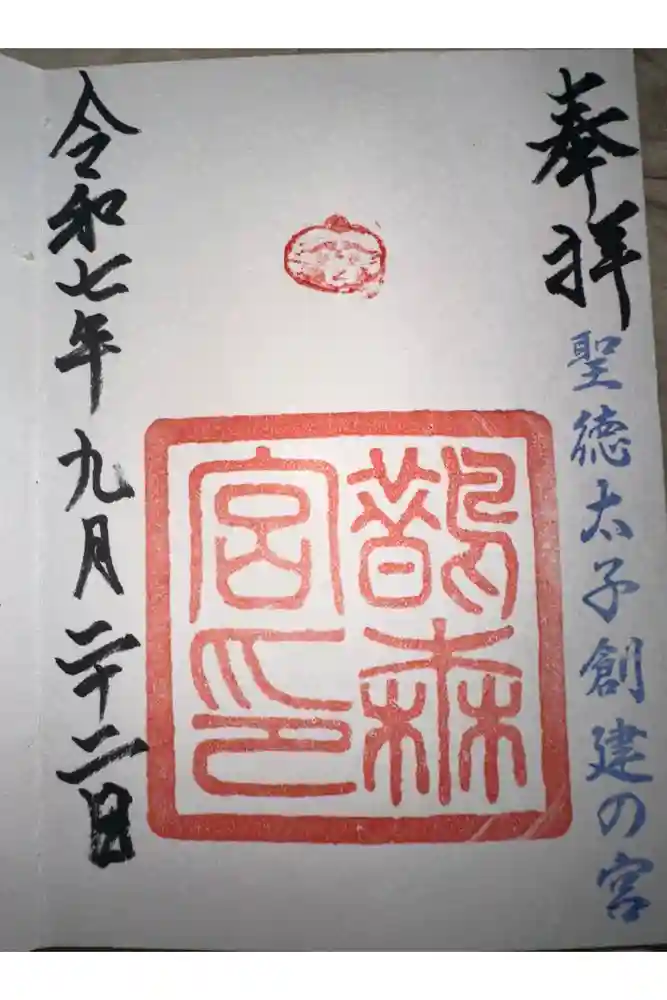 奉拝
聖徳太子創建の宮
鵲森
宮印
令和七年九月二十二日